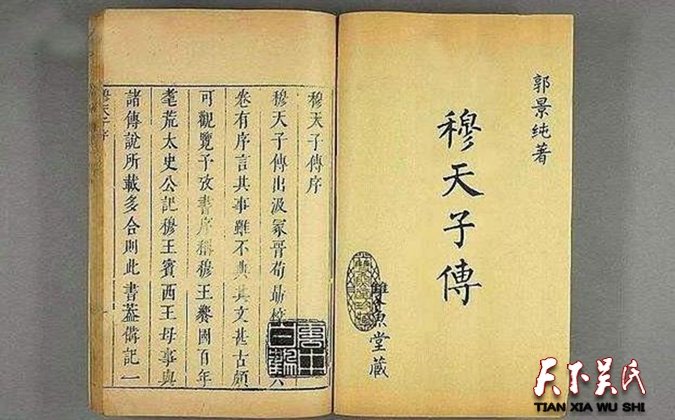 郭景纯著
穆天子傳
雙魚堂藏
穆天子傳序
穆天子傳出汲冢晉荀勗校 六
卷有序言其事雖不典其文甚古頗
可觀覽予攷書序稱穆王饗國百年
耄荒太史公記穆王賓西王母事與
諸傳說所載多合則此書葢僃記一
穆天子 序
天下吴氏
TIAN XIA WU SHI